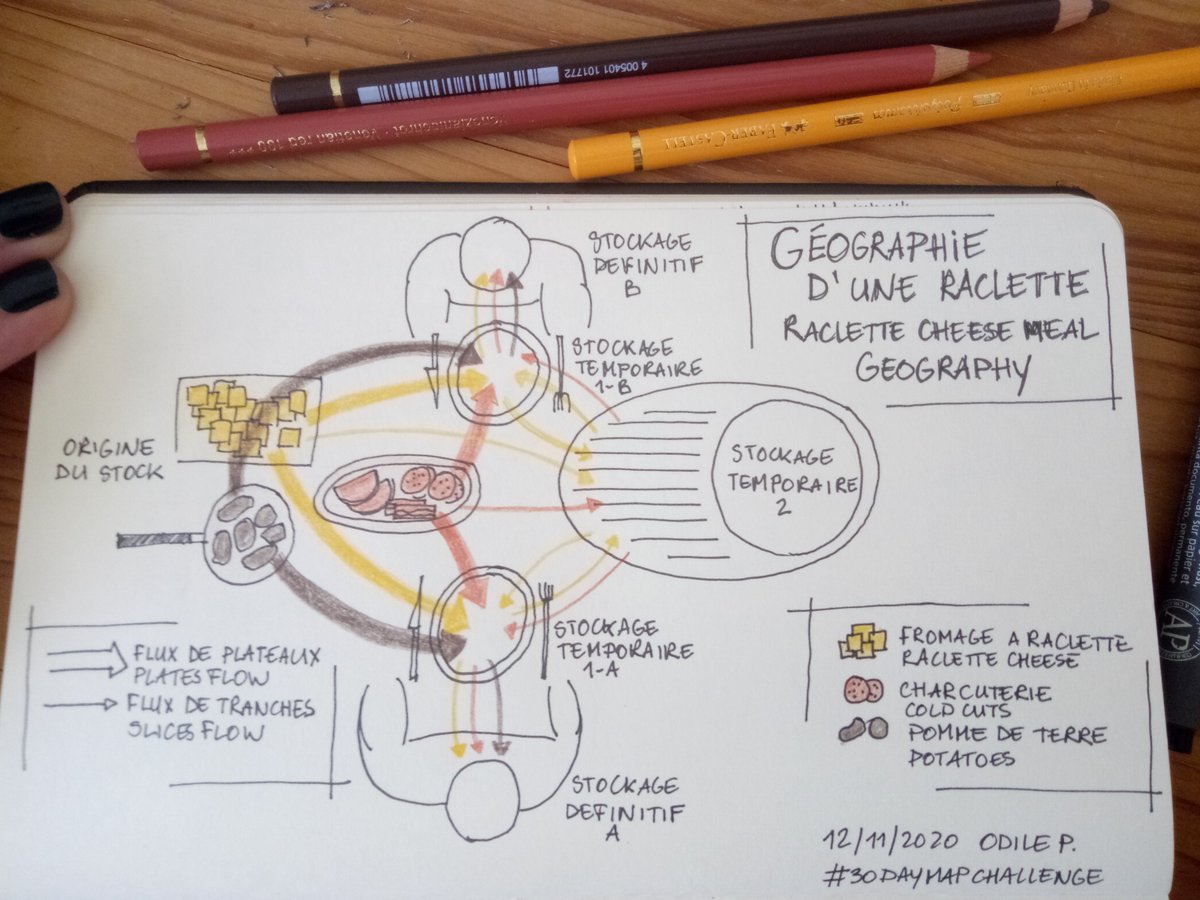 4 005401 101772
Venezianischrot · Venetian red 190 ***
FABER-CASTELL Polychromos
GÉOGRAPHIE
D'UNE RACLETTE
RACLETTE CHEESE MEAL
GEOGRAPHY
STOCKAGE
DEFINITIF
B
STOCKAGE
TEMPORAIRE
1-B
ORIGINE
DU STOCK
STOCKAGE
TEMPORAIRE
2
STOCKAGE
TEMPORAIRE
1-A
STOCKAGE
DEFINITIF
A
FLUX DE PLATEAUX
PLATES FLOW
FLUX DE TRANCHES
SLICES FLOW
FROMAGE A RACLETTE
RACLETTE CHEESE
CHARCUTERIE
COLD CUTS
POMME DE TERRE
POTATOES
12/11/2020 ODILE P.
#30DAYMAPCHALLENGE
sur papier et
documento, permanente
AP